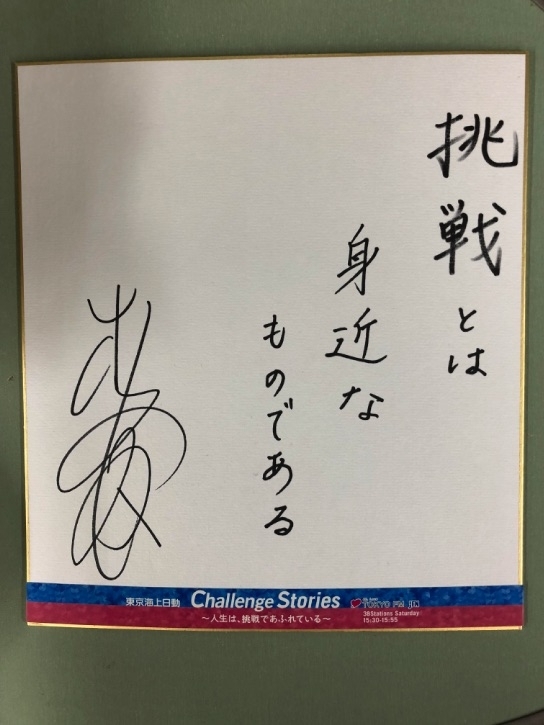 挑戦とは
身近な
ものである
東京海上日動 Challenge Stories
～人生は、挑戦であふれている～
TOKYO FM JFN
38Stations Saturday
15:30-15:55